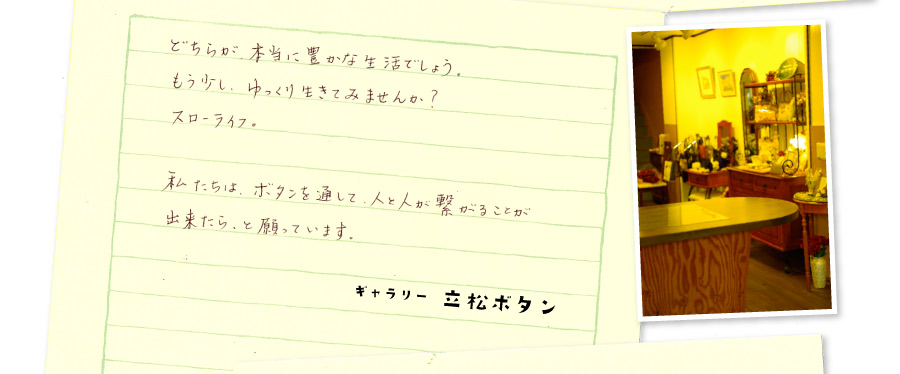 どちらが、本当に豊かな生活でしょう。
もう少し、ゆっくり生きてみませんか？
スローライフ。
私たちは、ボタンを通して、人と人が繋がることが
出来たら、と願っています。
ギャラリー 立松ボタン